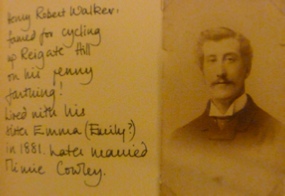 Henry Robert Walker:
famed for cycling
up Reigate Hill
on his penny
farthing!
Lived with his
sister Emma (Emily?)
in 1881. Later married
Minnie Cowley.